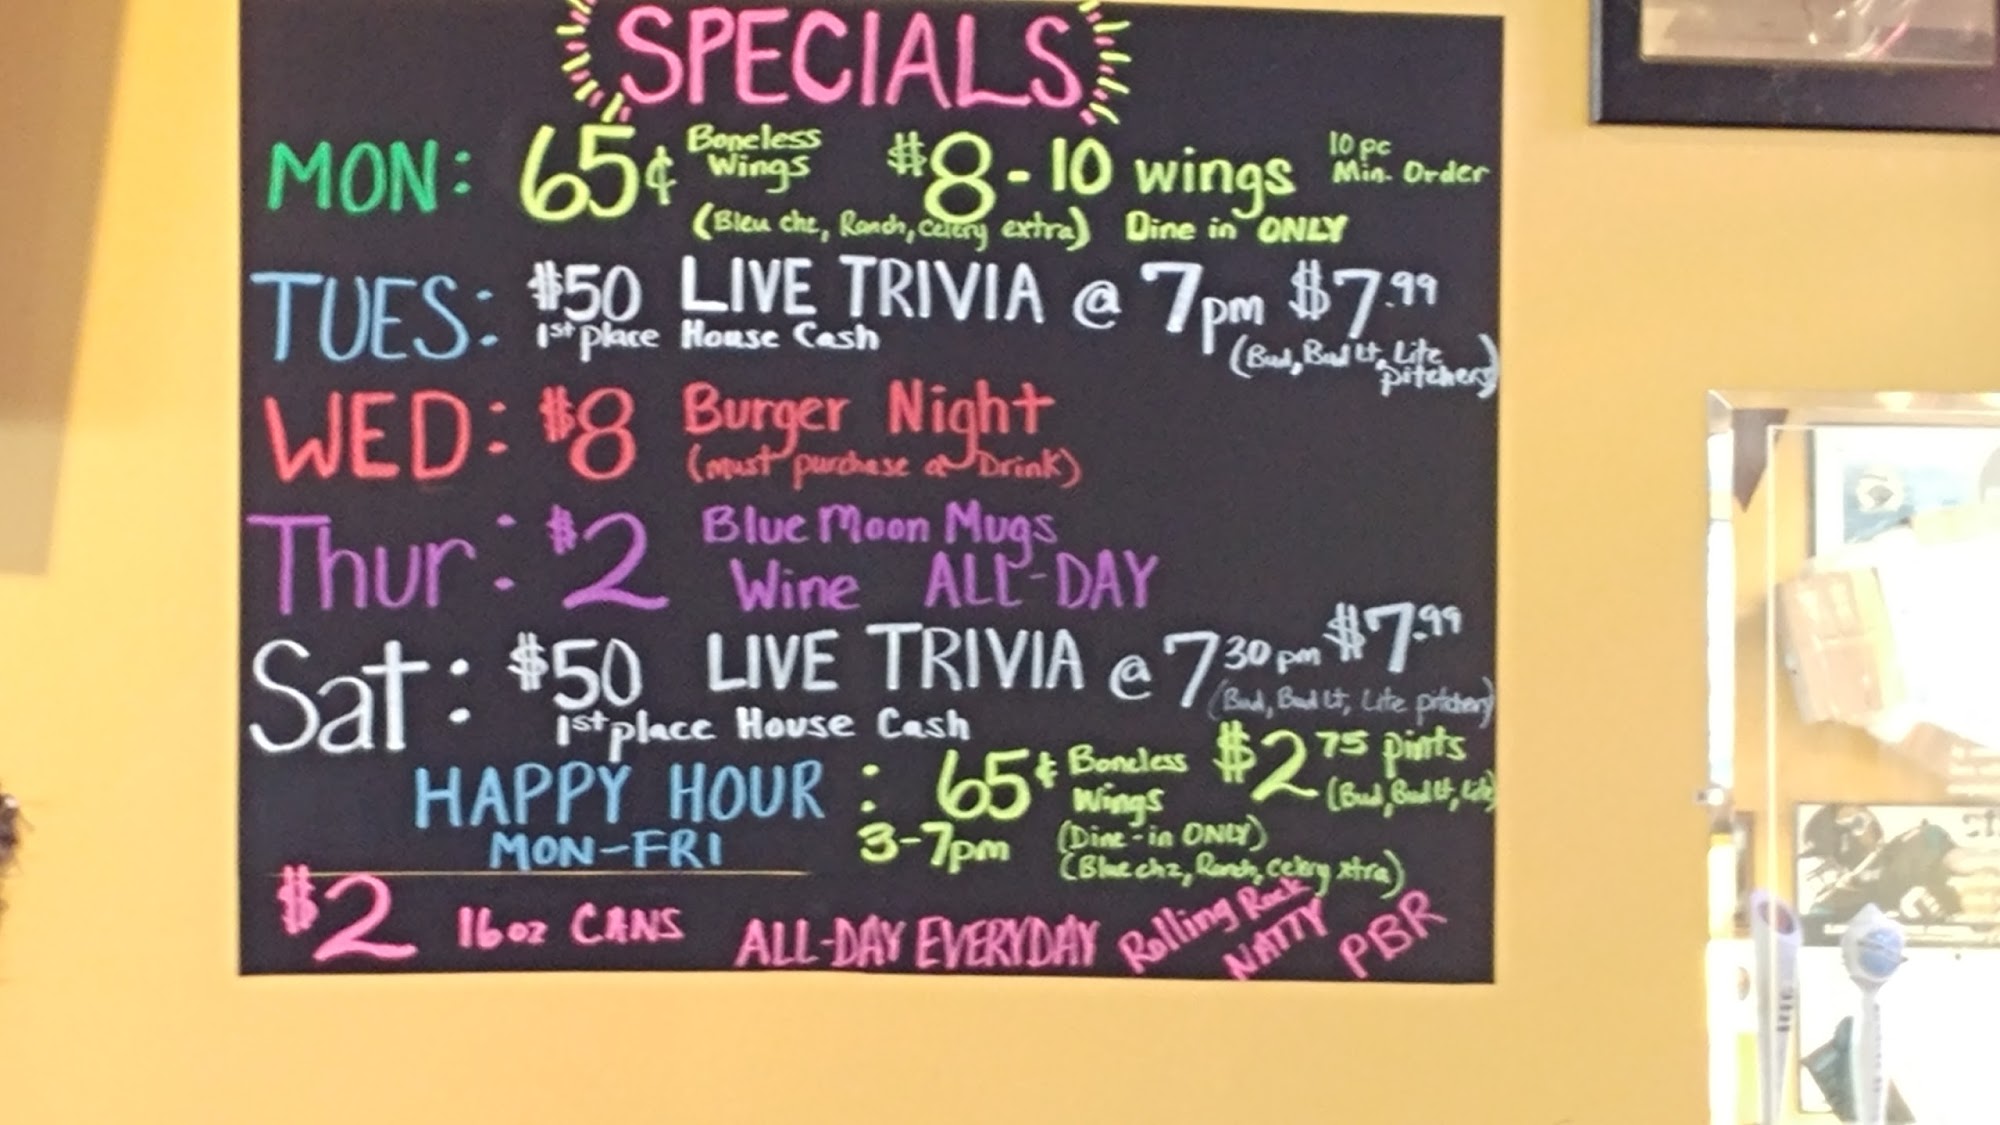 SPECIALS
MON: 65¢ Boneless Wings $8-10 wings 10 pc Min. Order
(Bleu chz, Ranch, Celery extra) Dine in ONLY
TUES: $50 LIVE TRIVIA @ 7pm $7.99
1st place House Cash (Bud, Bud Lt, Lite pitchers)
WED: $8 Burger Night
(must purchase a Drink)
Thur: $2 Blue Moon Mugs
Wine ALL-DAY
Sat: $50 LIVE TRIVIA @ 7 30 pm $7.99
1st place House Cash (Bud, Bud Lt, Lite pitchers)
HAPPY HOUR: 65¢ Boneless Wings $2 75 pints
MON-FRI 3-7pm (Dine-in ONLY) (Bud, Bud Lt, Lite)
(Blue chz, Ranch, Celery xtra)
$2 16oz CANS ALL-DAY EVERYDAY Rolling Rock NATTY PBR